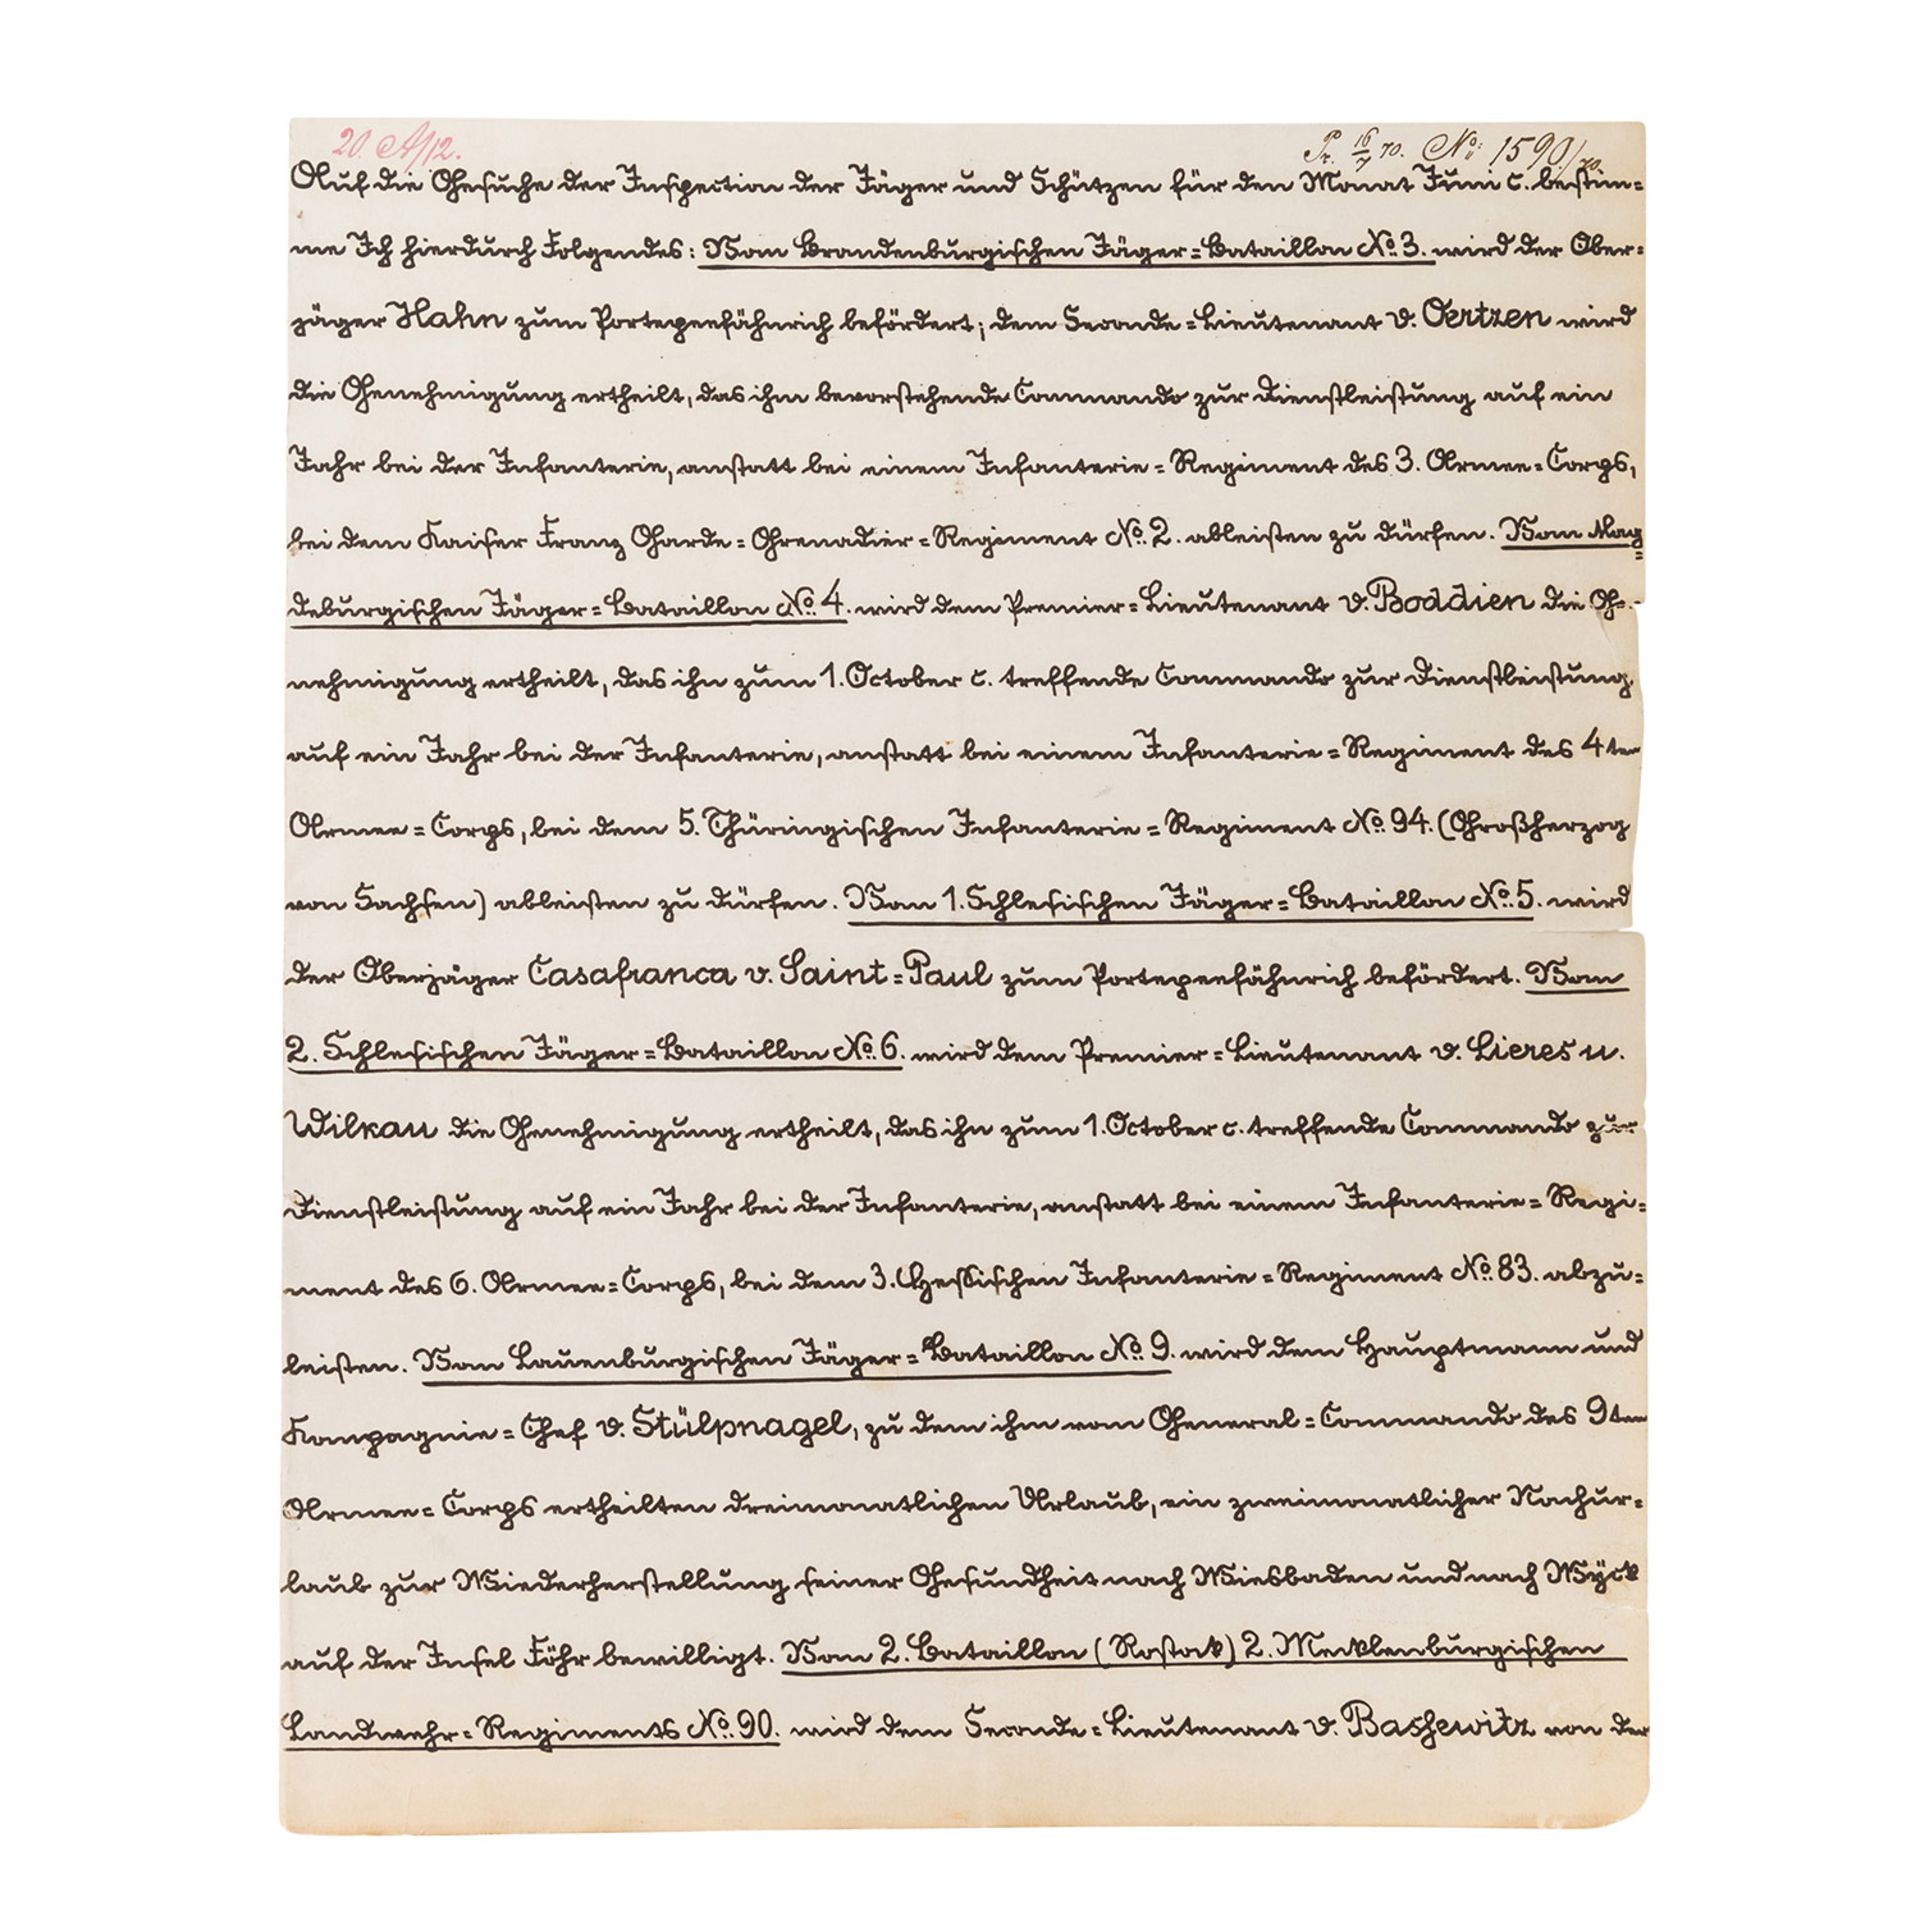 20. A/12.
Pr. 16/7 70. No: 1590/70.
Auf die Gesuche der Inspection der Jäger und Schützen für den Monat Juni c. bestim=
me Ich hierdurch Folgendes: Vom Brandenburgischen Jäger=Bataillon No. 3. wird der Ober=
jäger Hahn zum Portepeefähnrich befördert; dem Seconde=Lieutenant v. Oertzen wird
die Genehmigung ertheilt, das ihm bevorstehende Commando zur Dienstleistung auf ein
Jahr bei der Infanterie, anstatt bei einem Infanterie=Regiment des 3. Armee=Corps,
bei dem Kaiser Franz Garde=Grenadier=Regiment No. 2. ableisten zu dürfen. Vom Mag=
deburgischen Jäger=Bataillon No. 4. wird dem Premier=Lieutenant v. Boddien die Ge=
nehmigung ertheilt, das ihn zum 1. October c. treffende Commando zur Dienstleistung
auf ein Jahr bei der Infanterie, anstatt bei einem Infanterie=Regiment des 4ten
Armee=Corps, bei dem 5. Thüringischen Infanterie=Regiment No. 94. (Großherzog
von Sachsen) ableisten zu dürfen. Vom 1. Schlesischen Jäger=Bataillon No. 5. wird
der Oberjäger Casafranca v. Saint=Paul zum Portepeefähnrich befördert. Vom
2. Schlesischen Jäger=Bataillon No. 6. wird dem Premier=Lieutenant v. Lieres u.
Wilkau die Genehmigung ertheilt, das ihn zum 1. October c. treffende Commando zur
Dienstleistung auf ein Jahr bei der Infanterie, anstatt bei einem Infanterie=Regi=
ment des 6. Armee=Corps, bei dem 3. Hessischen Infanterie=Regiment No. 83. abzu=
leisten. Vom Lauenburgischen Jäger=Bataillon No. 9. wird dem Hauptmann und
Kompagnie=Chef v. Stülpnagel, zu dem ihm vom General=Commando des 9ten
Armee=Corps ertheilten dreimonatlichen Urlaub, ein zweimonatlicher Nachur=
laub zur Wiederherstellung seiner Gesundheit nach Wiesbaden und nach Wyck
auf der Insel Föhr bewilligt. Vom 2. Bataillon (Rostock) 2. Mecklenburgischen
Landwehr=Regiments No. 90. wird dem Seconde=Lieutenant v. Bassewitz von der